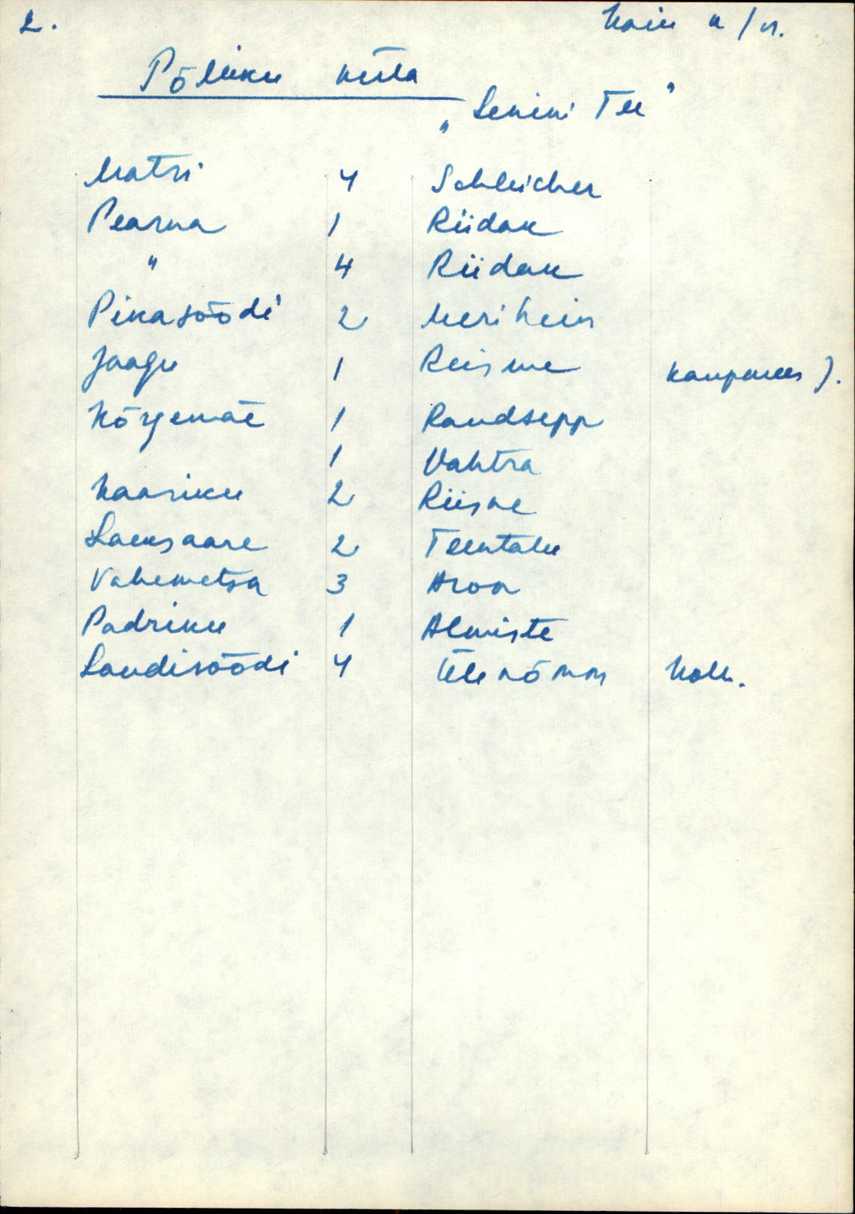 2. Kose k/n.
Põlliku küla
„Lenini Tee"
Matsi 4 Schleicher
Pearna 1 Riidak
" 4 Riidak
Pikasöödi 2 Merihein
Jaagu 1 Reisme kaupmees).
Kõrgemäe 1 Raudsepp
1 Vahtra
Kaasiku 2 Riisne
Laensaare 2 Teentalu
Vahemetsa 3 Aroa
Padriku 1 Almiste
Laudisöödi 4 Ülenõmm Kolh.